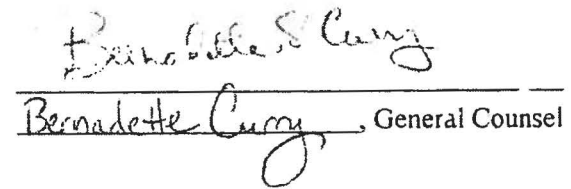 Bernadette S Curry
Bernadette Curry, General Counsel